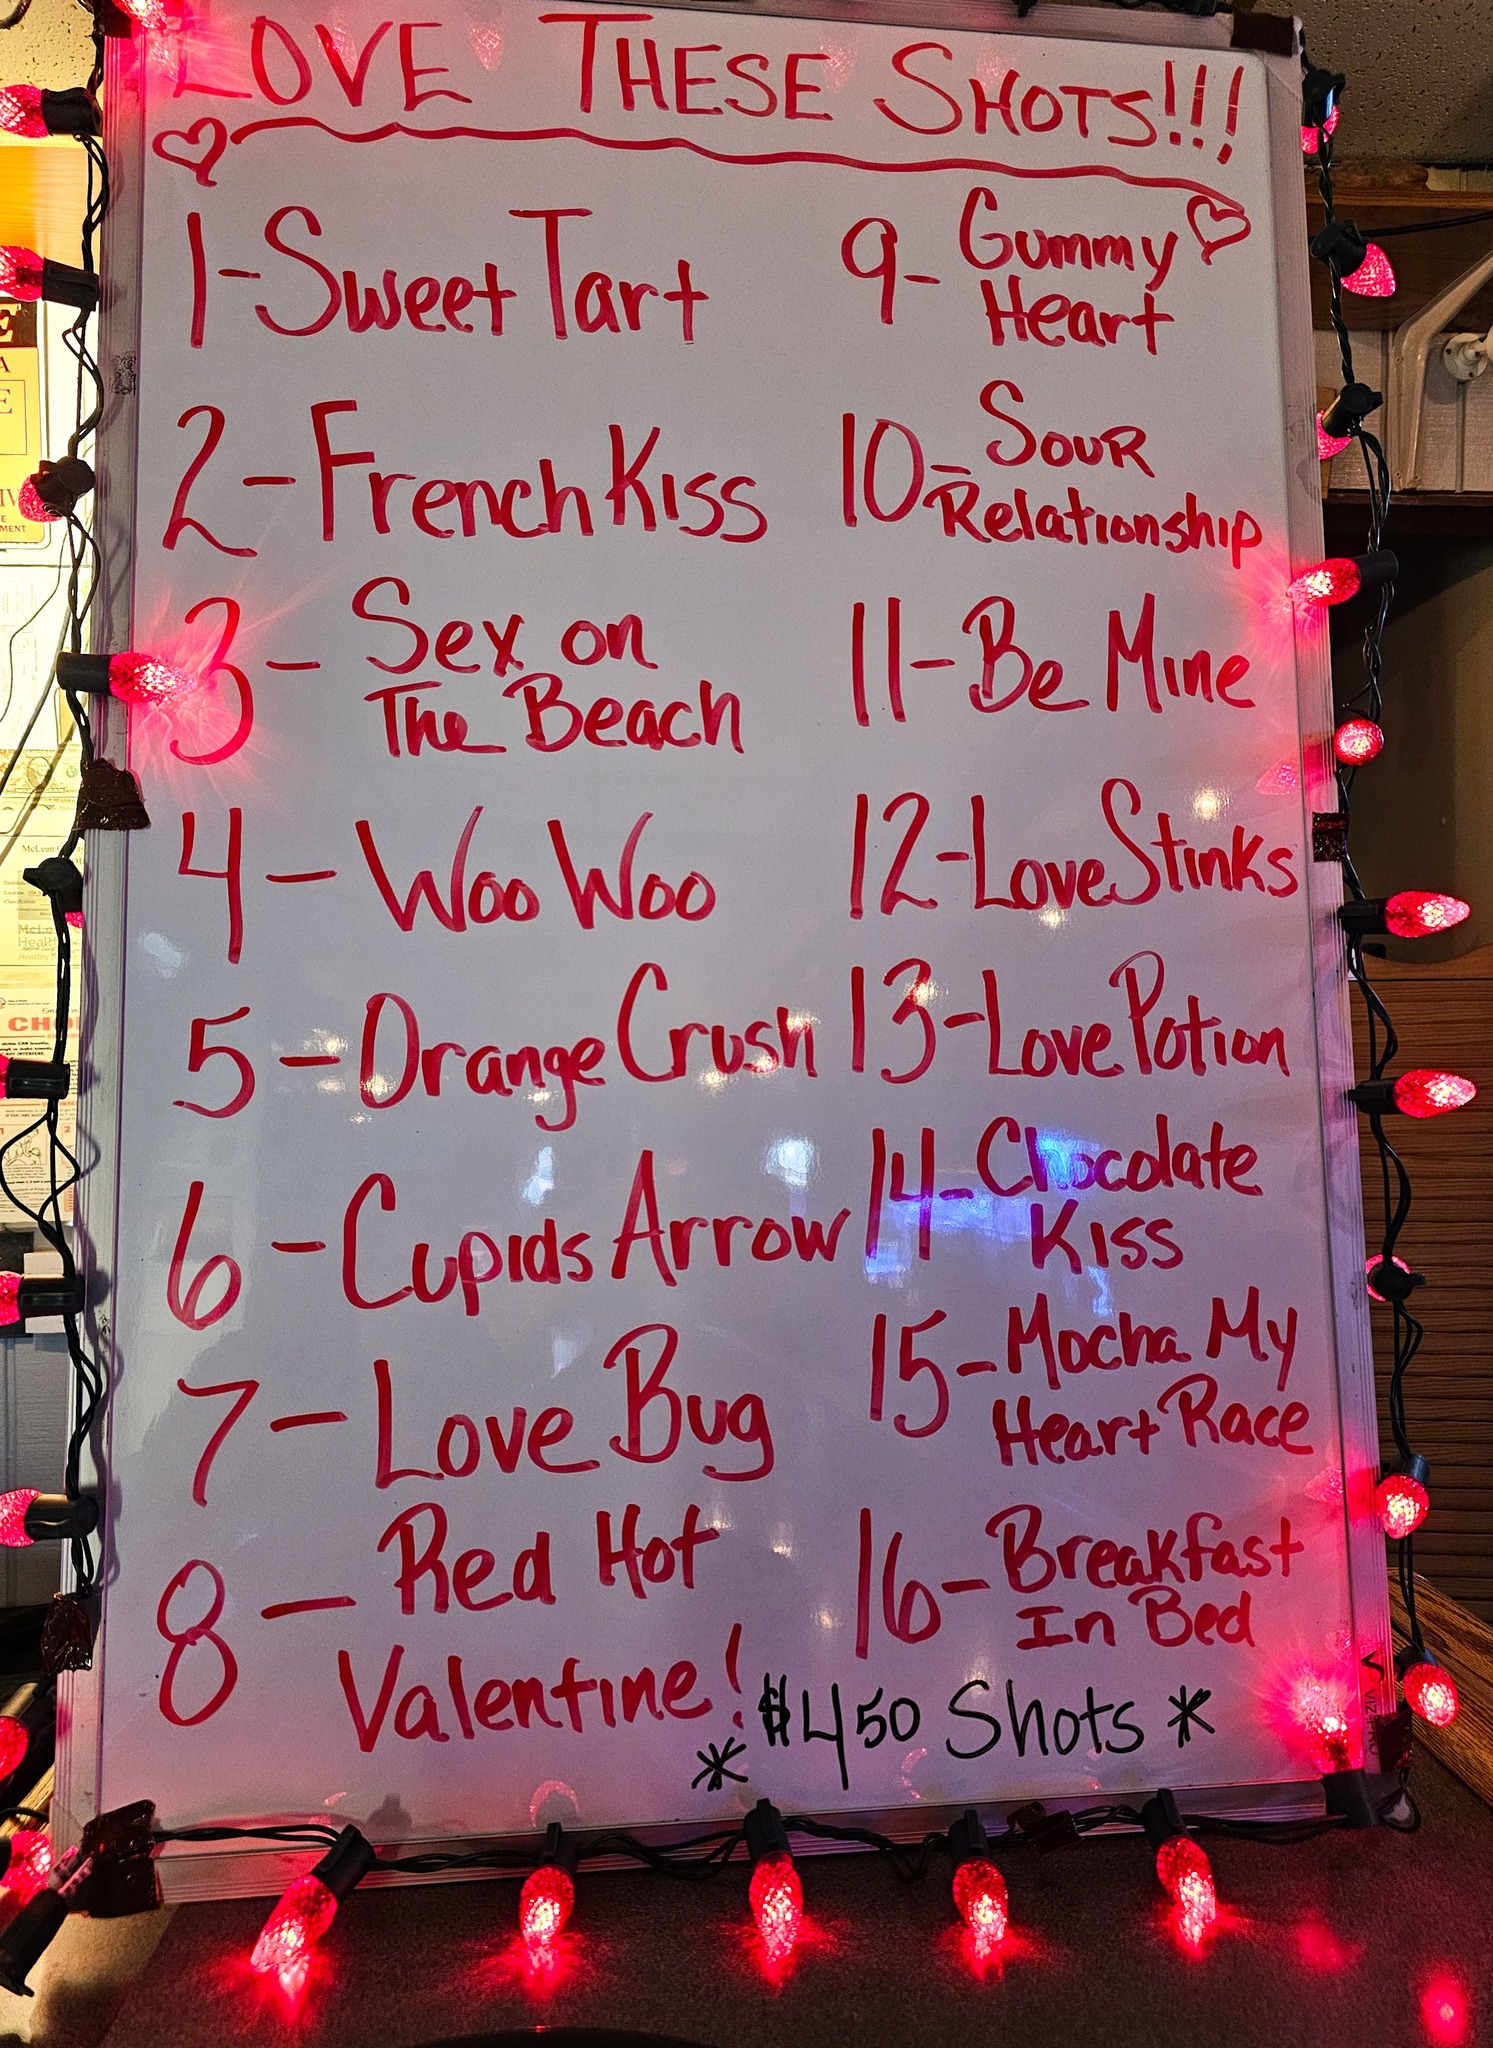 LOVE THESE SHOTS!!!
1-Sweet Tart
2-French Kiss
3- Sex on
The Beach
4- Woo Woo
5-Orange Crush
6-Cupids Arrow
7-Love Bug
8- Red Hot
Valentine!
9- Gummy
Heart
10- Sour
Relationship
11-Be Mine
12-Love Stinks
13-Love Potion
14-Chocolate
Kiss
15-Mocha My
Heart Race
16-Breakfast
In Bed
* $4 50 Shots *
CHO